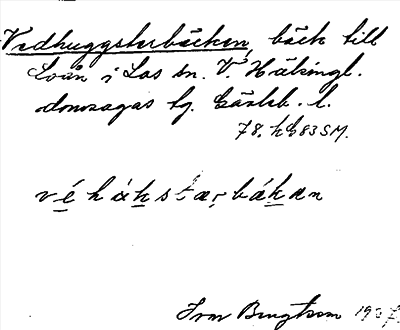 Vedhuggsterbäcken, bäck till
Loån i Los sn. V. Hälsingl.
domsagas tg. Gävleb. l.
78. h G83 SM.
v é h á k s t æ r b á k a n
Ivar Bengtsson 1937.